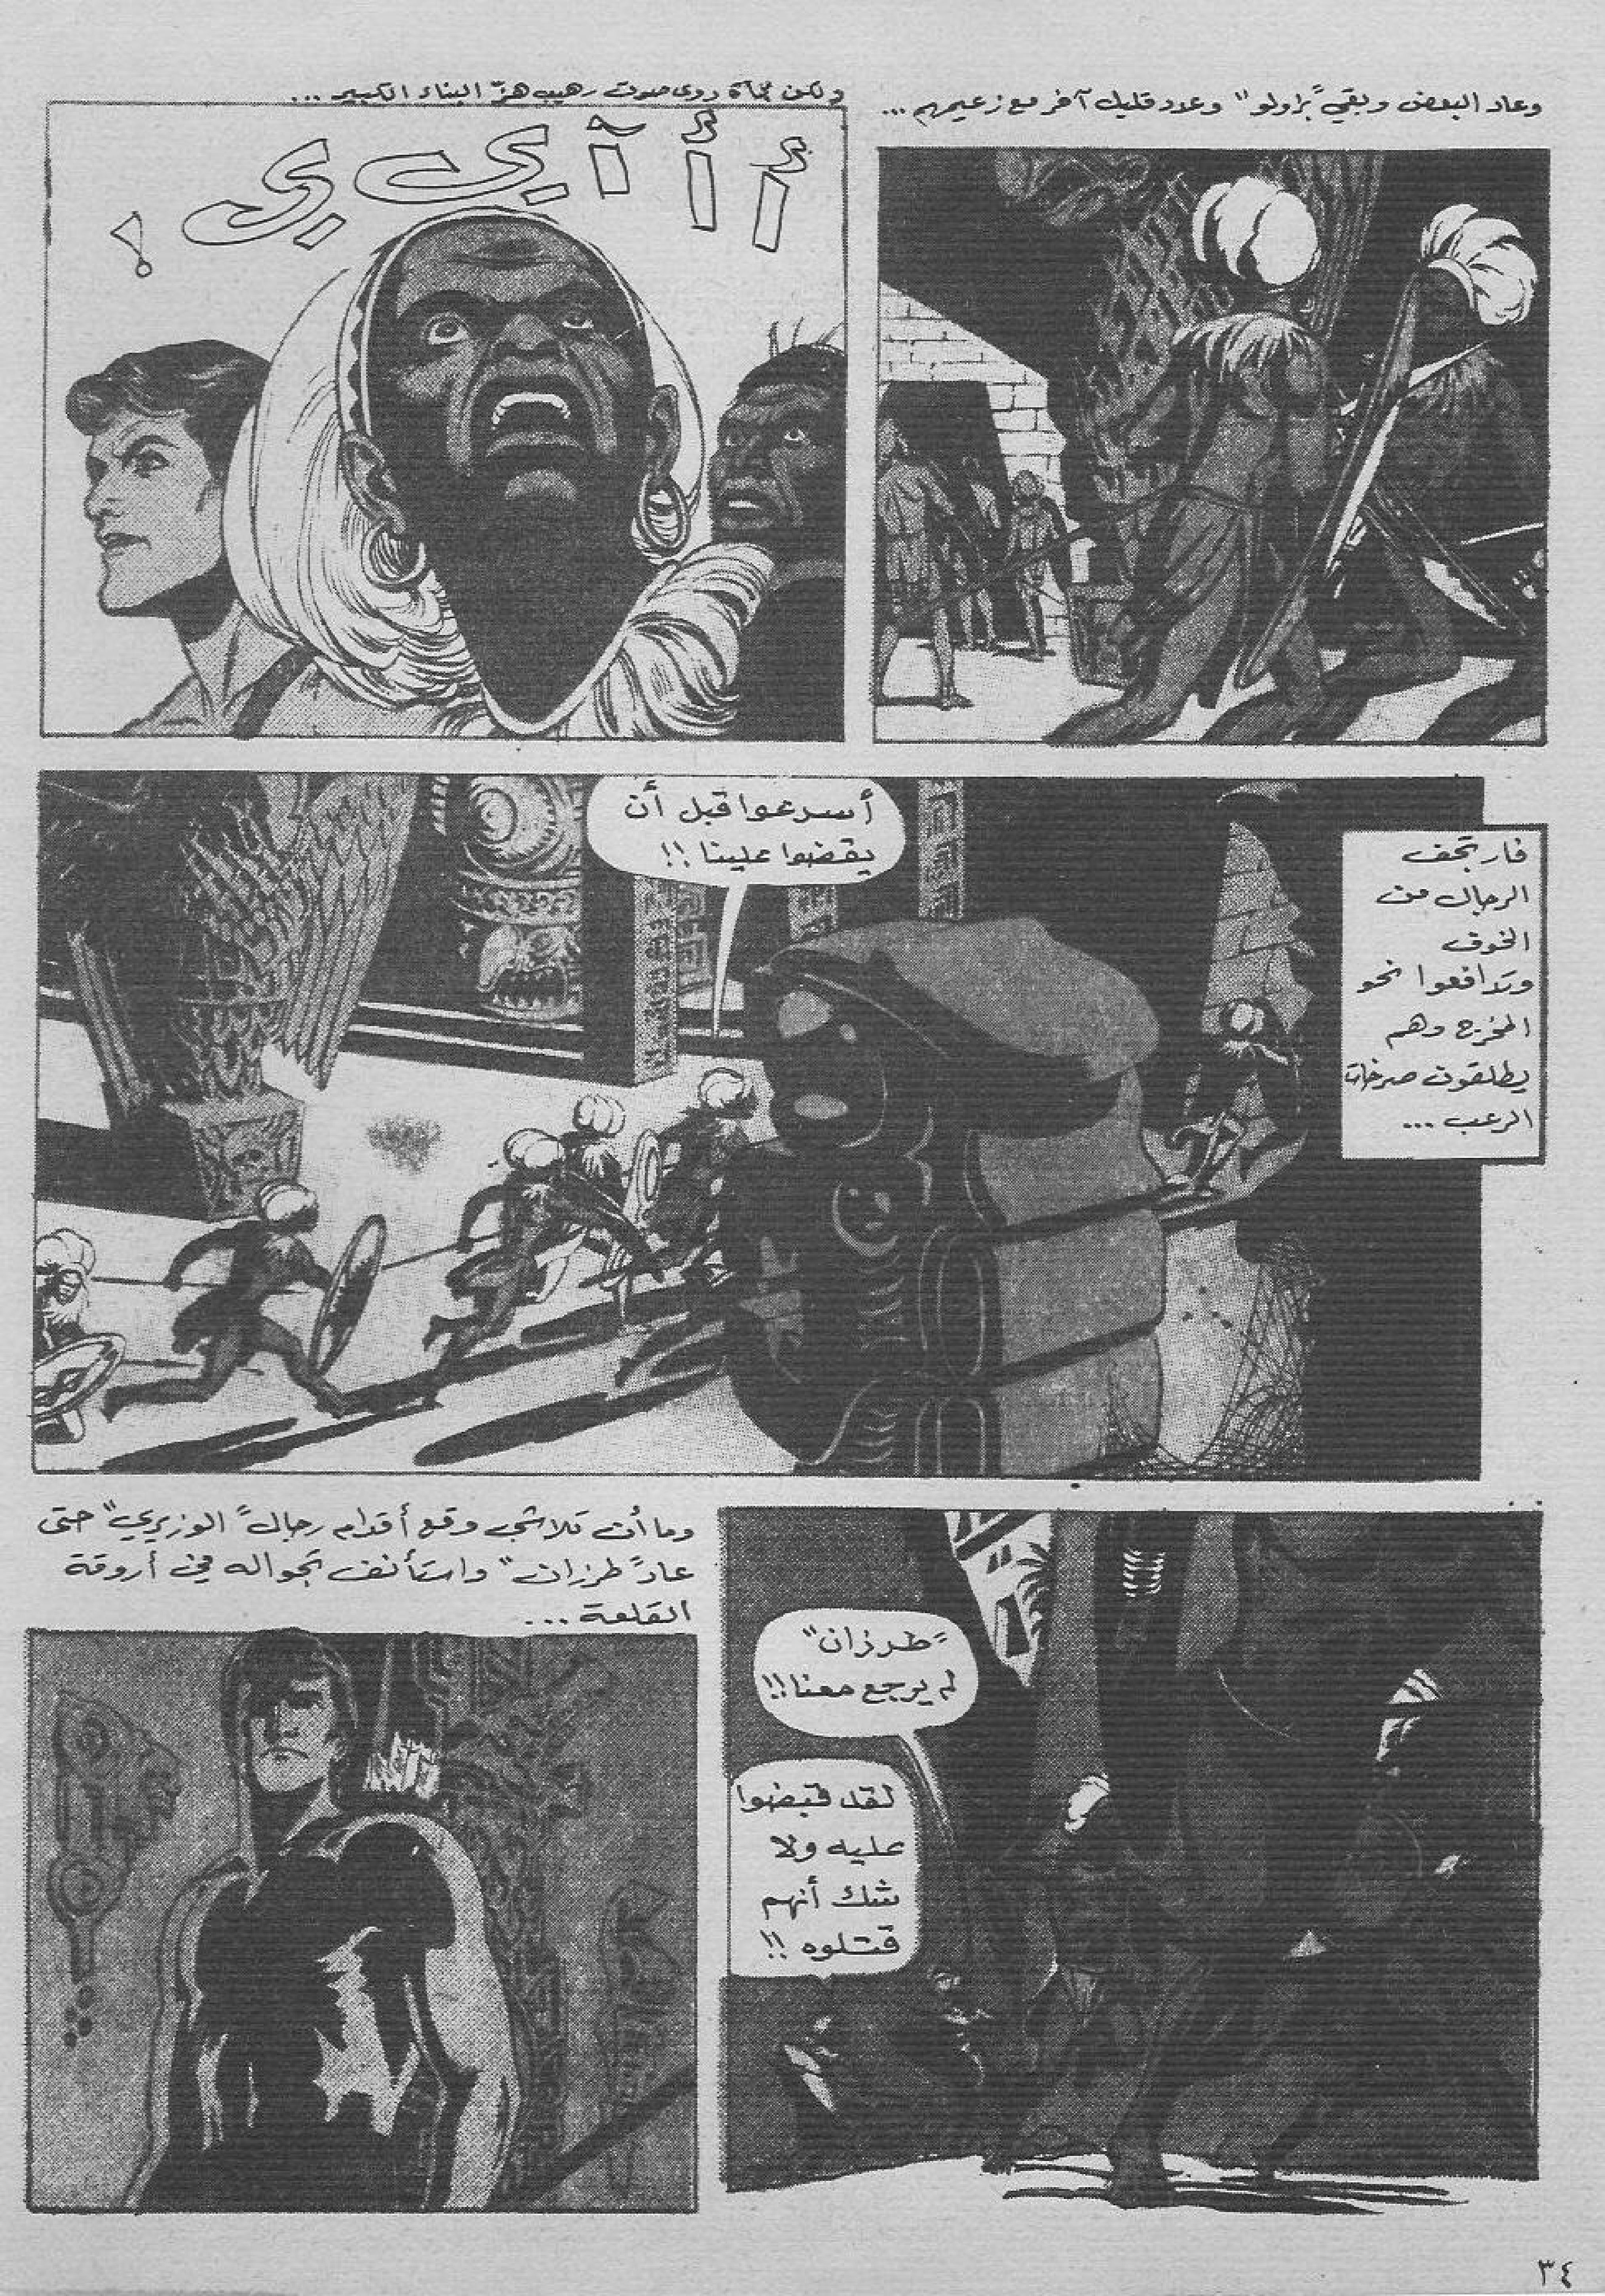 وعاد البعض وبقي "براولو" وعدد قليل آخر مع زعيمهم ...
ولكن فجأة دوى صوت رهيب هزّ البناء الكبير ...
أ أ آ ي ي !
فارتجف
الرجال من
الخوف
وتدافعوا نحو
المخرج وهم
يطلقون صرخات
الرعب ...
أسرعوا قبل أن
يقضوا علينا !!
"طرزان"
لم يرجع معنا !!
لقد قبضوا
عليه ولا
شك أنهم
قتلوه !!
وما أن تلاشى وقع أقدام رجال "الوزيري" حتى
عاد "طرزان" واستأنف تجواله في أروقة
القلعة ...
٣٤